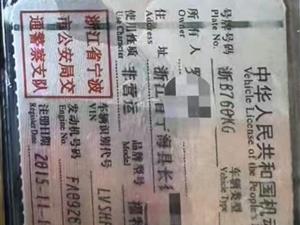 中华人民共和国机动
Vehicle License of the People's
号牌号码
Plate No.
浙B760KG
车辆类型
Vehicle Type
所有人
Owner
罗
住址
Address
浙江省宁海县长
使用性质
Use Character
非营运
品牌型号
Model
浙江省宁波
市公安局交
通警察支队
车辆识别代号
VIN
LVSHF
发动机号码
Engine No.
FA0926
注册日期
Register Date
2015-11-1